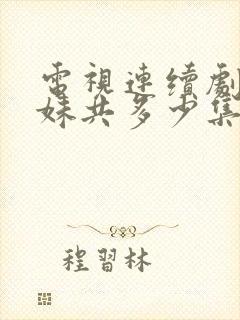 電視連續劇
妹共多少集
程習林